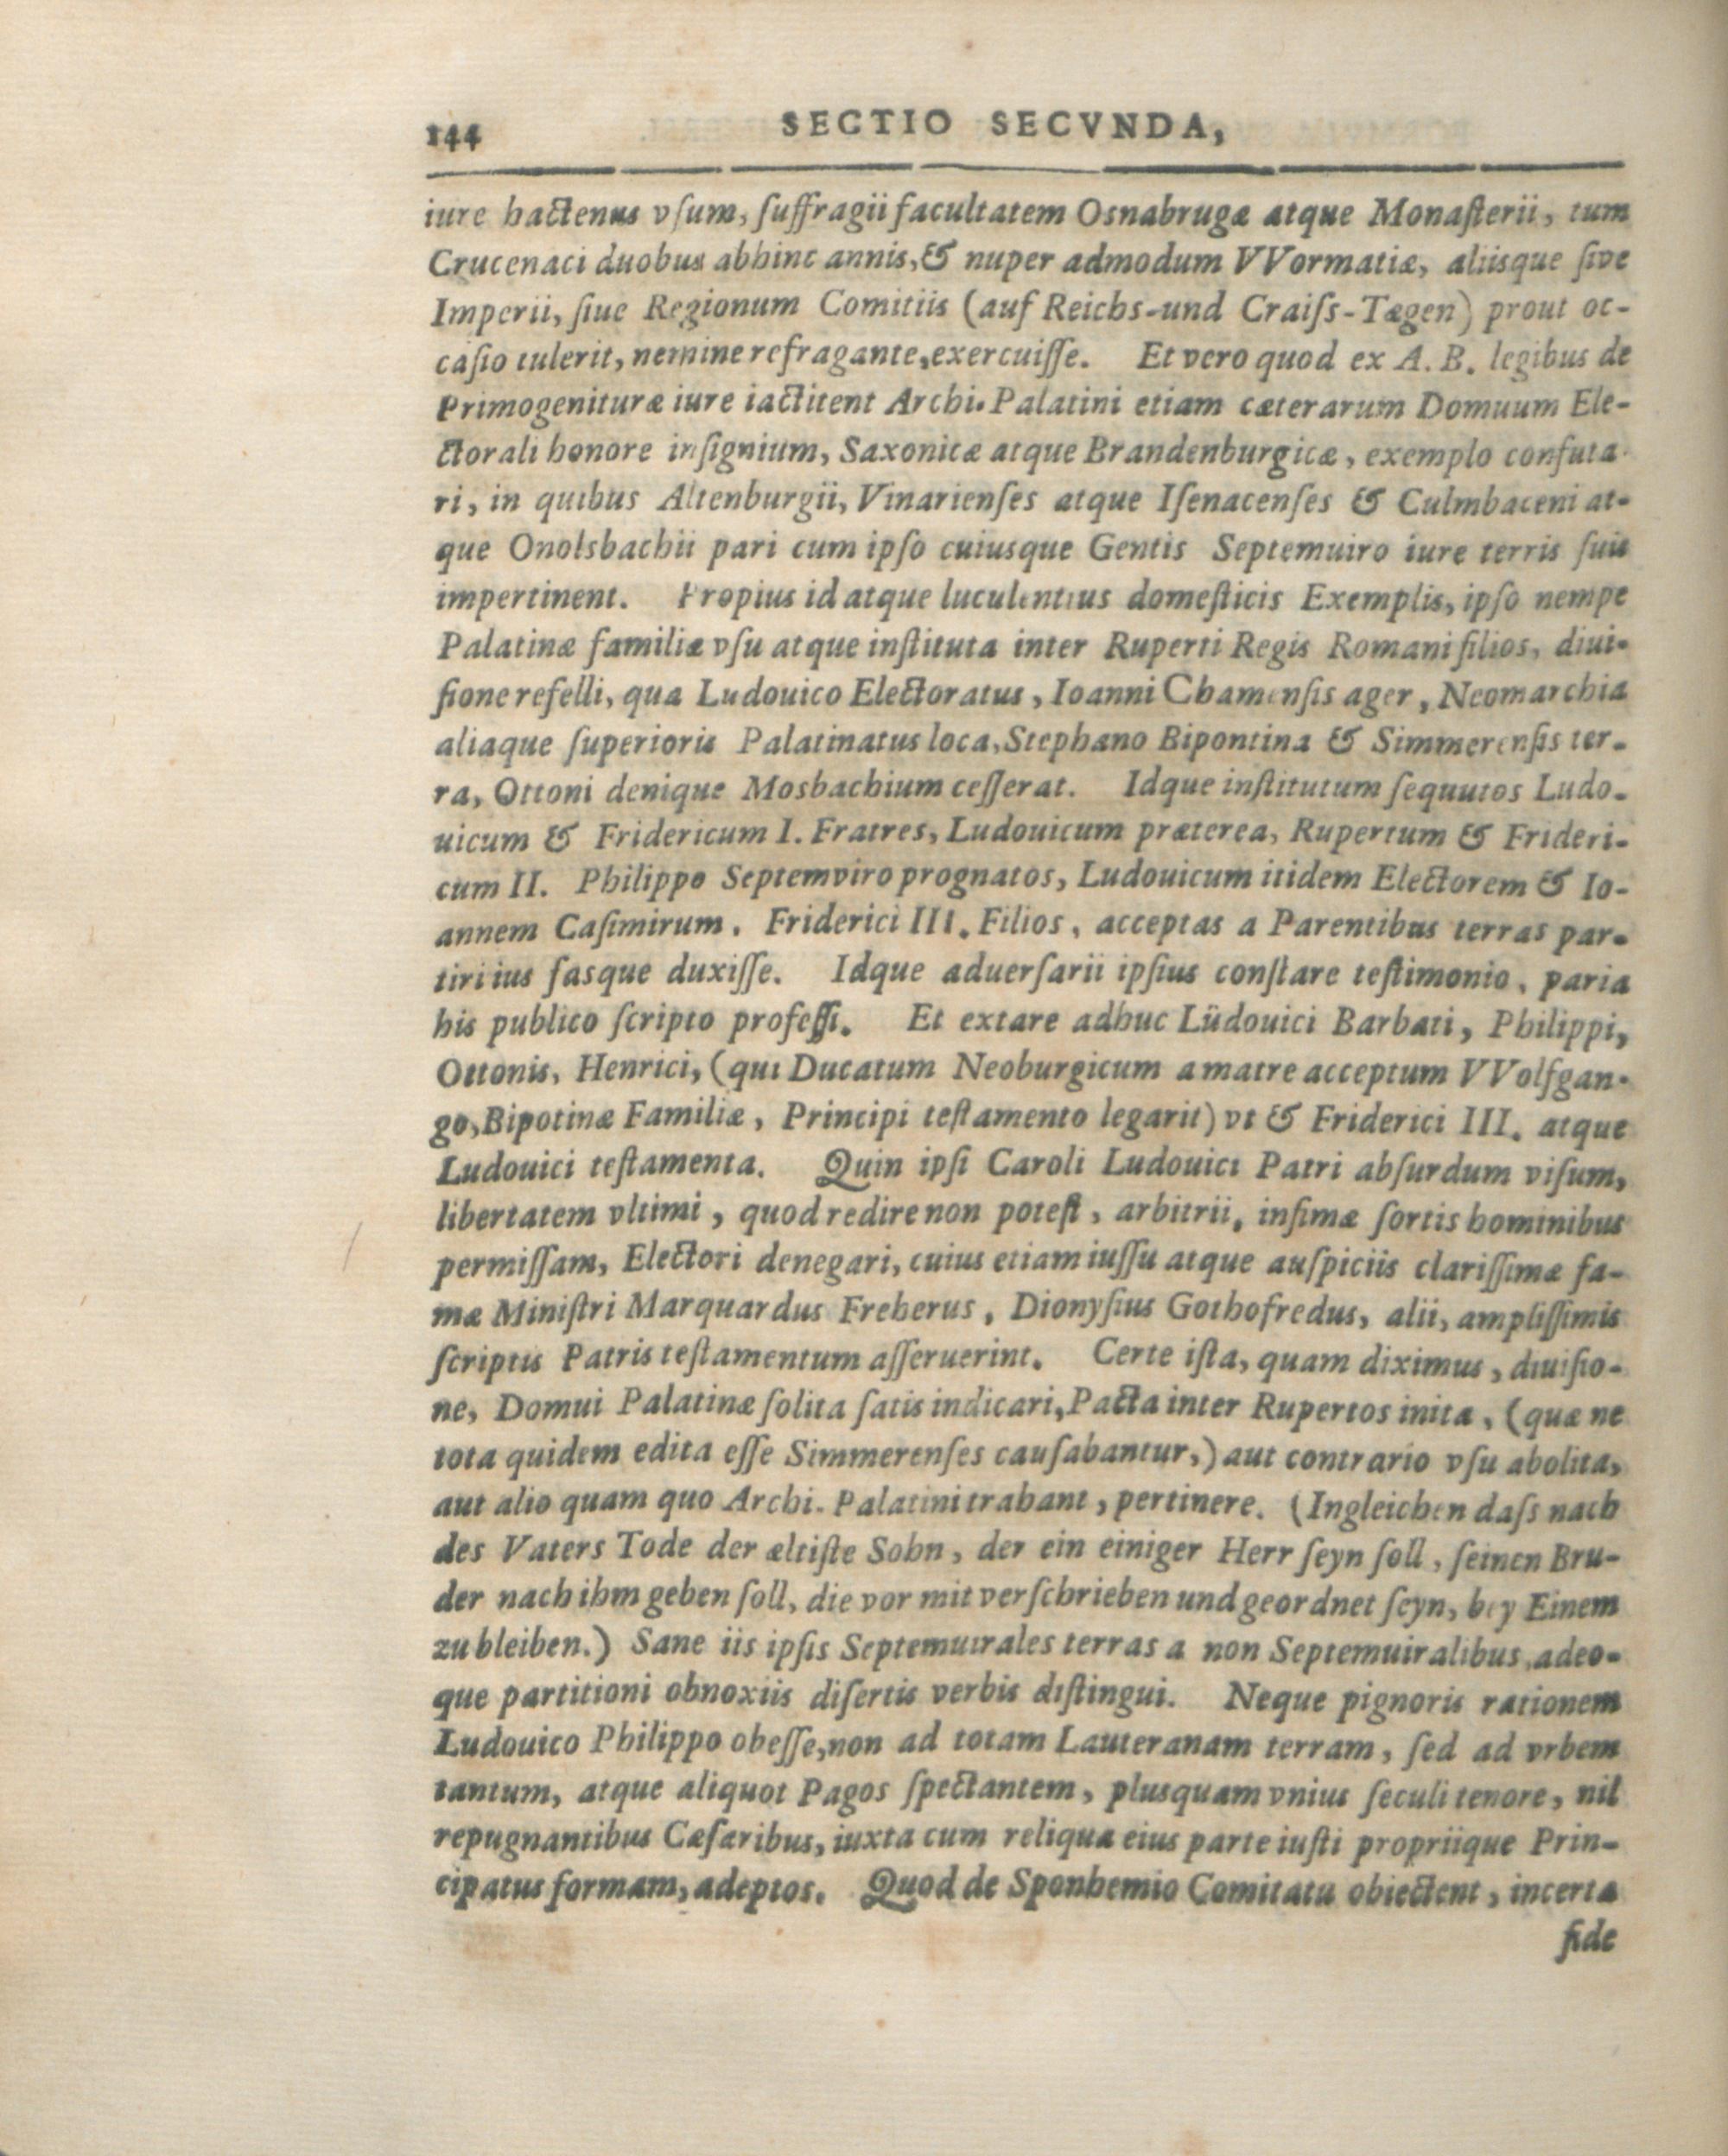 144 SECTIO SECVNDA,
iure hactenus vſum, ſuffragii facultatem Osnabrugæ atque Monaſterii, tum
Crucenaci duobus abhinc annis, & nuper admodum VVormatiæ, aliisque ſive
Imperii, ſiue Regionum Comitiis (auf Reichs-und Craiſs-Tægen) prout oc-
caſio tulerit, nemine refragante, exercuiſſe. Et vero quod ex A. B. legibus de
Primogenituræ iure iactitent Archi-Palatini etiam cæterarum Domuum Ele-
ctorali honore inſignium, Saxonicæ atque Brandenburgicæ, exemplo confuta-
ri, in quibus Altenburgii, Vinarienſes atque Iſenacenſes & Culmbaceni at-
que Onolsbachii pari cum ipſo cuiusque Gentis Septemuiro iure terris ſuis
impertinent. Propius id atque luculentius domeſticis Exemplis, ipſo nempe
Palatinæ familiæ vſu atque inſtituta inter Ruperti Regis Romani filios, diui-
ſione refelli, qua Ludouico Electoratus, Ioanni Chamenſis ager, Neomarchia
aliaque ſuperioris Palatinatus loca, Stephano Bipontina & Simmerenſis ter-
ra, Ottoni denique Mosbachium ceſſerat. Idque inſtitutum ſequutos Ludo-
uicum & Fridericum I. Fratres, Ludouicum præterea, Rupertum & Frideri-
cum II. Philippo Septemviro prognatos, Ludouicum itidem Electorem & Io-
annem Caſimirum, Friderici III. Filios, acceptas a Parentibus terras par-
tiri ius fasque duxiſſe. Idque aduerſarii ipſius conſtare teſtimonio, paria
his publico ſcripto profeſſi. Et extare adhuc Lüdouici Barbati, Philippi,
Ottonis, Henrici, (qui Ducatum Neoburgicum a matre acceptum VVolfgan-
go, Bipotinæ Familiæ, Principi teſtamento legarit) vt & Friderici III. atque
Ludouici teſtamenta. Quin ipſi Caroli Ludouici Patri abſurdum viſum,
libertatem vltimi, quod redire non poteſt, arbitrii, infimæ ſortis hominibus
permiſſam, Electori denegari, cuius etiam iuſſu atque auſpiciis clariſſimæ fa-
mæ Miniſtri Marquardus Freherus, Dionyſius Gothofredus, alii, ampliſſimis
ſcriptis Patris teſtamentum aſſeruerint. Certe iſta, quam diximus, diuiſio-
ne, Domui Palatinæ ſolita ſatis indicari, Pacta inter Rupertos inita, (quæ ne
tota quidem edita eſſe Simmerenſes cauſabantur,) aut contrario vſu abolita,
aut alio quam quo Archi-Palatini trahant, pertinere. (Ingleichen daſs nach
des Vaters Tode der æltiſte Sohn, der ein einiger Herr ſeyn ſoll, ſeinen Bru-
der nach ihm geben ſoll, die vor mit verſchrieben und geordnet ſeyn, bey Einem
zu bleiben.) Sane iis ipſis Septemuirales terras a non Septemuiralibus, adeo-
que partitioni obnoxiis diſertis verbis diſtingui. Neque pignoris rationem
Ludouico Philippo obeſſe, non ad totam Lauteranam terram, ſed ad vrbem
tantum, atque aliquot Pagos ſpectantem, plusquam vnius ſeculi tenore, nil
repugnantibus Cæſaribus, iuxta cum reliqua eius parte iuſti propriique Prin-
cipatus formam, adeptos. Quod de Sponhemio Comitatu obiectent, incerta
fide